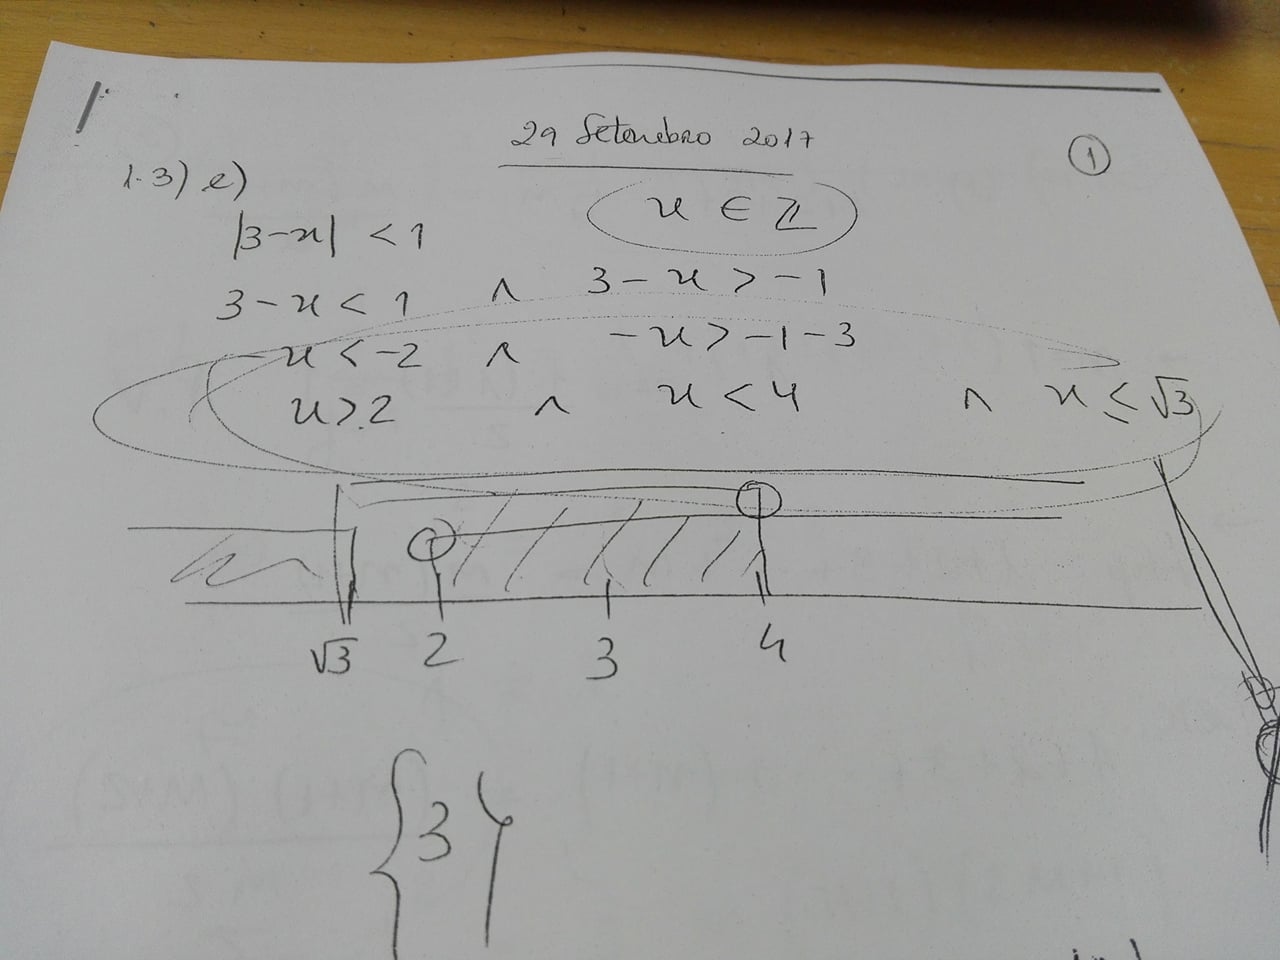 29 Setembro 2017
1
1.3) e)
x ∈ ℤ
|3-x| < 1
3-x < 1 ∧ 3-x > -1
-x < -2 ∧ -x > -1-3
x > 2 ∧ x < 4 ∧ x ≤ √3
√3 2 3 4
{3}